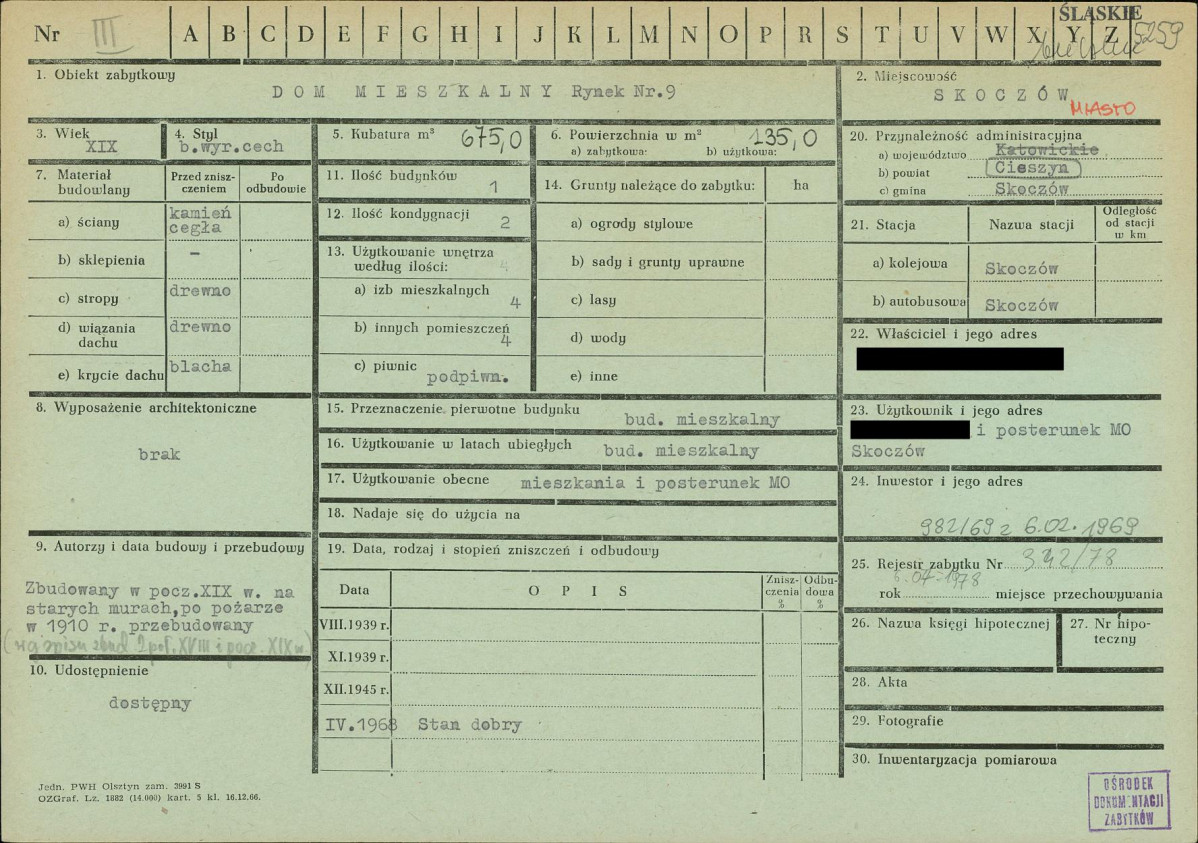 Nr III A B C D E F G H I J K L M N O P R S T U V W X Y Z ŚLĄSKIE 5259
1. Obiekt zabytkowy
DOM MIESZKALNY Rynek Nr.9
2. Miejscowość
SKOCZÓW
MIASTO
3. Wiek
XIX
4. Styl
b.wyr.cech
5. Kubatura m³ 675,0
6. Powierzchnia w m² 135,0
a) zabytkowa: b) użytkowa:
7. Materiał budowlany
Przed zniszczeniem
Po odbudowie
a) ściany kamień cegła
b) sklepienia –
c) stropy drewno
d) wiązania dachu drewno
e) krycie dachu blacha
8. Wyposażenie architektoniczne
brak
9. Autorzy i data budowy i przebudowy
Zbudowany w pocz.XIX w. na
starych murach,po pożarze
w 1910 r. przebudowany
(wg spisu zbud. 2 poł. XVIII i pocz. XIX w.)
10. Udostępnienie
dostępny
11. Ilość budynków 1
12. Ilość kondygnacji 2
13. Użytkowanie wnętrza
według ilości:
a) izb mieszkalnych 4
b) innych pomieszczeń 4
c) piwnic podpiwn.
14. Grunty należące do zabytku: ha
a) ogrody stylowe
b) sady i grunty uprawne
c) lasy
d) wody
e) inne
15. Przeznaczenie pierwotne budynku bud. mieszkalny
16. Użytkowanie w latach ubiegłych bud. mieszkalny
17. Użytkowanie obecne mieszkania i posterunek MO
18. Nadaje się do użycia na
19. Data, rodzaj i stopień zniszczeń i odbudowy
Data OPIS Zniszczenia % Odbudowa %
VIII.1939 r.
XI.1939 r.
XII.1945 r.
IV.1968 Stan dobry
20. Przynależność administracyjna
a) województwo Katowickie
b) powiat Cieszyn
c) gmina Skoczów
21. Stacja Nazwa stacji Odległość od stacji w km
a) kolejowa Skoczów
b) autobusowa Skoczów
22. Właściciel i jego adres
23. Użytkownik i jego adres
i posterunek MO
Skoczów
24. Inwestor i jego adres
982/69 z 6.02.1969
25. Rejestr zabytku Nr 342/78
rok 6.04.1978 miejsce przechowywania
26. Nazwa księgi hipotecznej
27. Nr hipoteczny
28. Akta
29. Fotografie
30. Inwentaryzacja pomiarowa
Jedn. PWH Olsztyn zam. 3991 S
OZGraf. Lz. 1882 (14.000) kart. 5 kl. 16.12.66.
OŚRODEK
DOKUMENTACJI
ZABYTKÓW